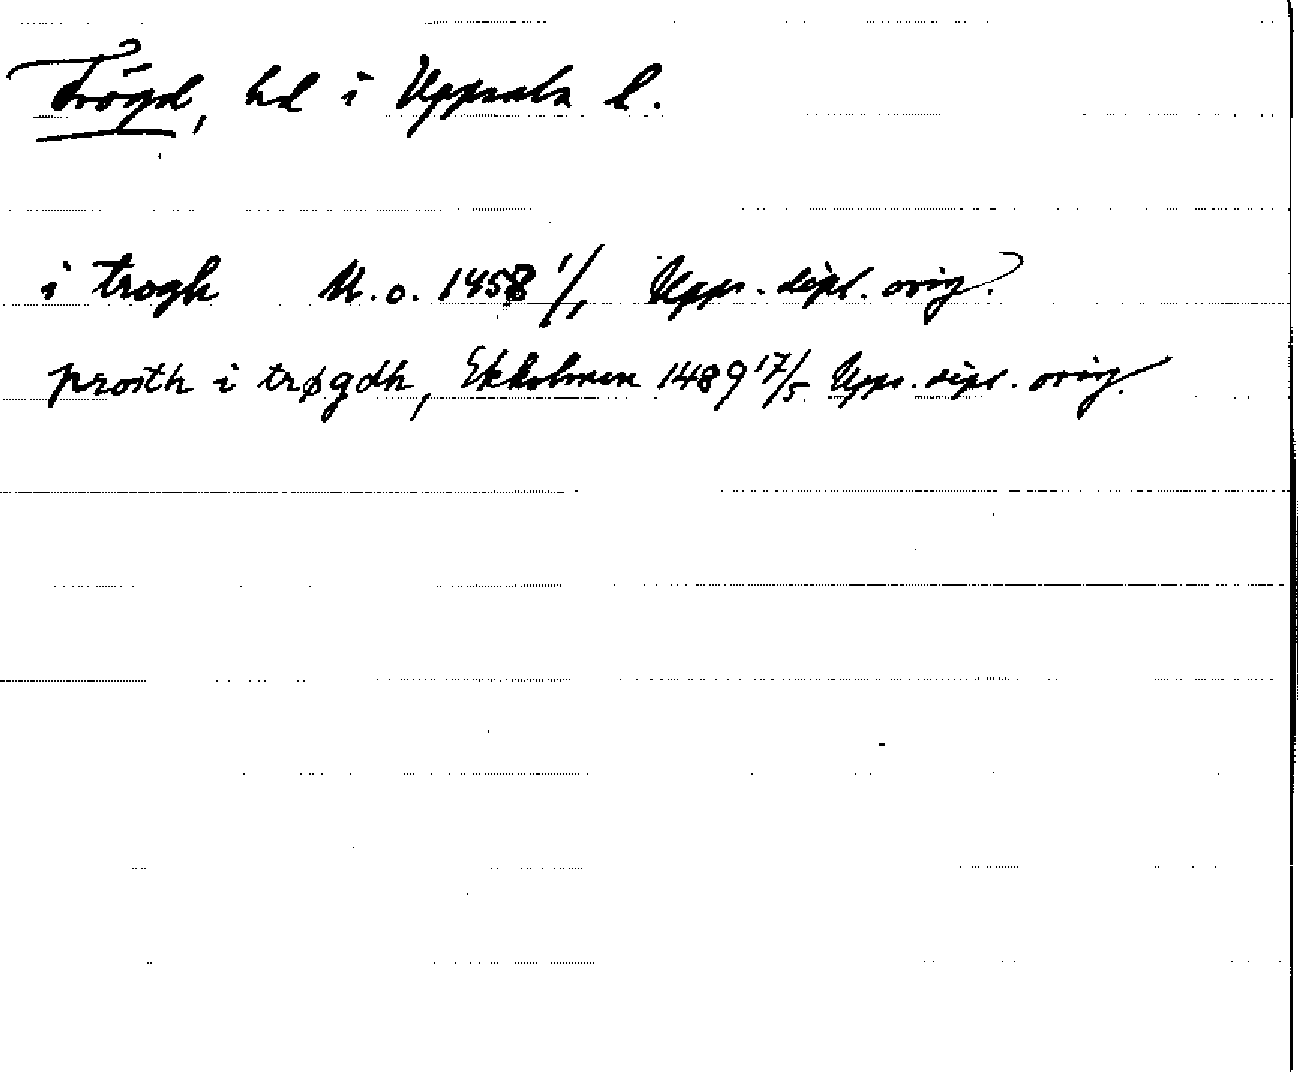 Trögd, hd i Uppsala l.
i trogh U.o. 1458 1/1 Upps. dipl. orig.
prosth i trøgdh, Ekholmen 1489 17/5 Upps. dipl. orig.